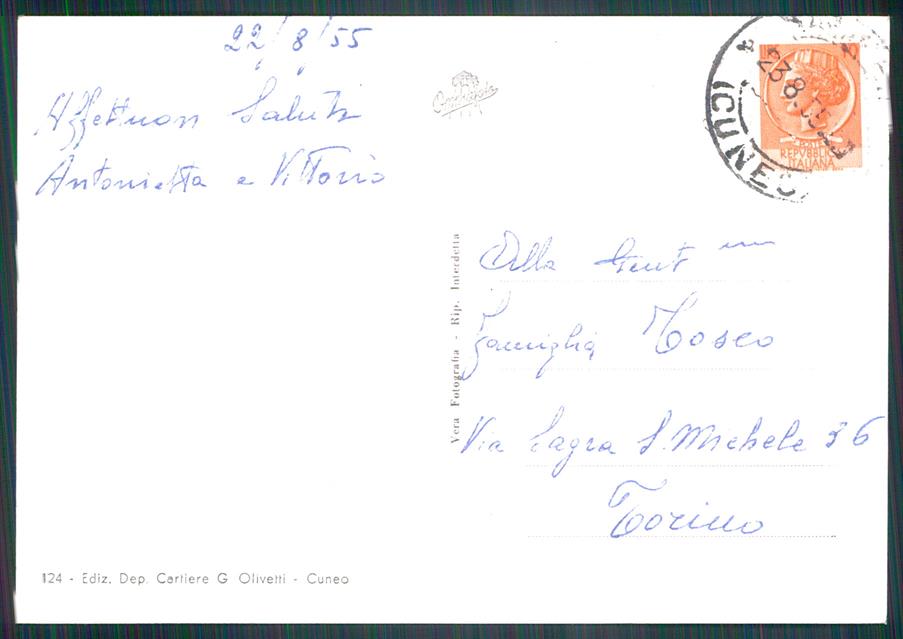 22/8/55
Affettuosi Saluti
Antonietta e Vittorio
23.8.55
(CUNEO)
POSTE
REPVBBLICA
ITALIANA
Vera Fotografia - Rip. Interdetta
Alla Gent ma
Famiglia Tosco
Via Sagra S. Michele 36
Torino
124 - Ediz. Dep. Cartiere G Olivetti - Cuneo